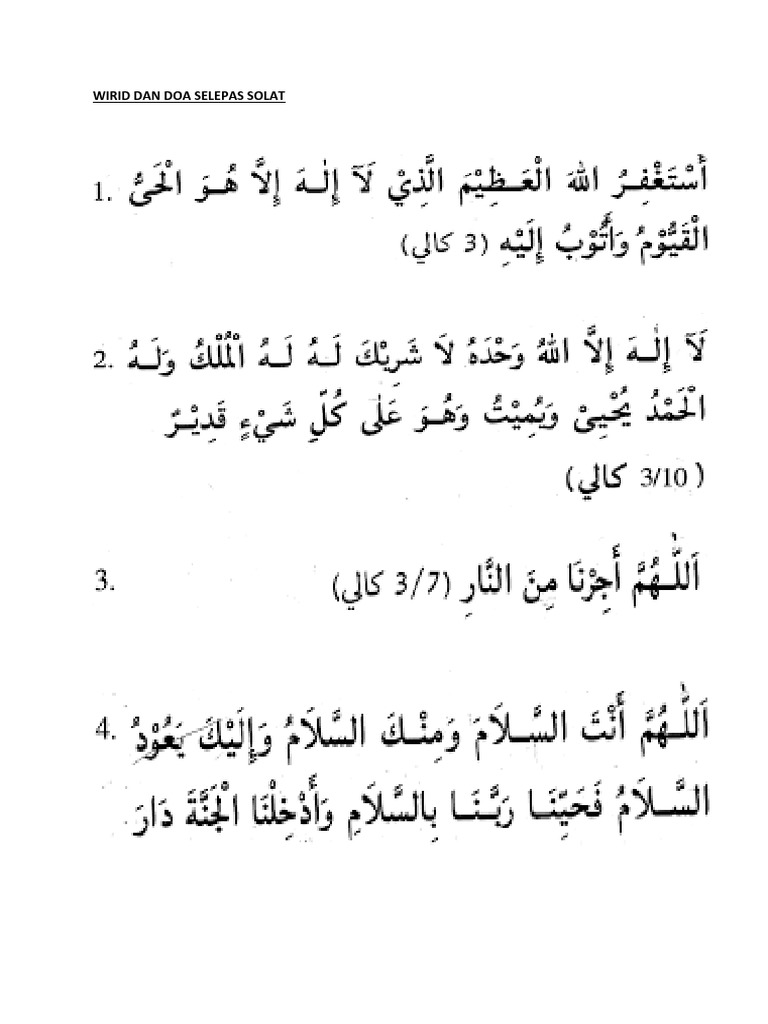 WIRID DAN DOA SELEPAS SOLAT
1. أَسْتَغْفِرُ اللهَ الْعَـظِيْمَ الَّذِيْ لَآ إِلٰـهَ إِلاَّ هُـوَ الْحَيُّ
الْقَيُّوْمُ وَأَتُوْبُ إِلَيْهِ (3 كالي)
2. لَآ إِلٰـهَ إِلاَّ اللهُ وَحْدَهُ لَا شَرِيْكَ لَـهُ لَهُ الْمُلْكُ وَلَـهُ
الْحَمْدُ يُحْيِىْ وَيُمِيْتُ وَهُوَ عَلٰى كُلِّ شَيْءٍ قَدِيْـرٌ
(3/10 كالي)
3. اَللّٰـهُمَّ أَجِرْنَا مِنَ النَّارِ (3/7 كالي)
4. اَللّٰـهُمَّ أَنْتَ السَّـلَامَ وَمِنْـكَ السَّلَامُ وَإِلَيْكَ يَعُوْدُ
السَّـلَامُ فَحَيِّنَـا رَبَّـنَـا بِالسَّلَامِ وَأَدْخِلْنَا الْجَنَّةَ دَارَ